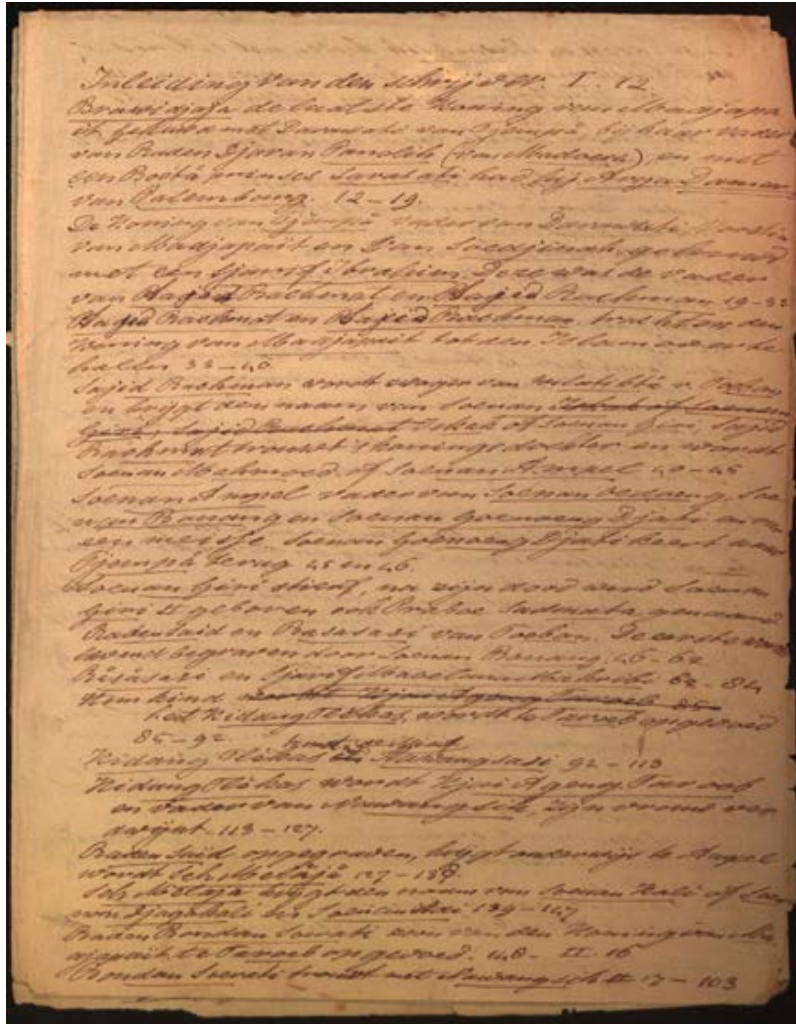 Inleiding van den schrijver. I. 12.
Bråwidjåjå de laatste Koning van Madjapa
it gehuwd met Darawati van Tjempå, bij haar vader
van Raden Djaran Panolih (van Madoera), en met
een prinses had hij Arya Damar
van Palembang. 12 – 19.
De Koning van Tjempå vader van Darawati
van Madjapait en van gehuwd
met een Sjarif Ibrahim. Deze was de vader
van Sajid Rachmat en Sajid Rachman 19 – 33
Sajid Rachmat en Sajid Rachman trachten den
Koning van Madjapait tot den Islam over te
halen 33 – 40
Sajid Rachman wordt zwager van v. Toeban
en krijgt den naam van Soenan
of Soenan Giri, Sajid
Rachmat trouwt 's konings dochter en wordt
Soenan Machmoed of Soenan Ampel 40 – 45
Soenan Ampel vader van Soenan Soe
nan Bonang en Soenan Goenoeng Djati en
een meisje. Soenan Goenoeng Djati keert naar
Tjempå terug 45 en 46.
Soenan Giri sterft, na zijn dood werd Soenan
Giri II geboren ook Praboe Sadmata genaamd
Raden Said en Rasawulan van Toeban. De eerste
levend begraven door Soenan Bonang. 46 – 62
en Sjarif 62 – 84
Hun kind
het Kidang Tlĕkas, wordt te Taroeb opgevoed
85 – 92
Kidang Tlĕkas Nawangsasi 92 – 113
Kidang Tlĕkas wordt Kjai Ageng Taroeb
en vader van Nawangsih, zijn vrouw ver
dwijnt 113 – 127.
Raden Said opgegraven, krijgt onderwijs te Ampel
wordt Seh Mĕlåjå 127 – 139
Seh Mĕlåjå krijgt den naam van Soenan Kali of Soe
nan Djagakali 139 – 147
Raden Bondan Soerati zoon van den Koning van Ma
djapait te Taroeb opgevoed. 148 – II 16
Bondan Soerati trouwt met Nawangsih II 17 – 103